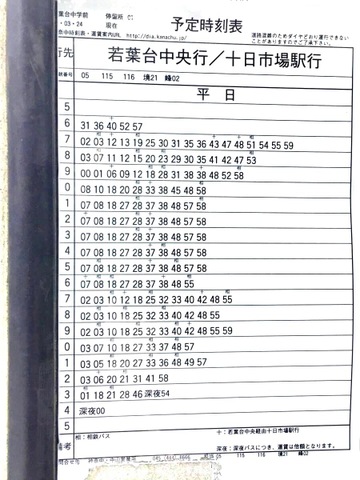 葉台中学前 停留所 01
・03・24 現在
予定時刻表
道路混雑のためダイヤどおり運行できない
ことがありますのでご了承下さい。
中時刻表・運賃案内URL http://dia.kanachu.jp/
行先 若葉台中央行／十日市場駅行
統番号 05 115 116 境21 峰02
平 日
5
6 31 36 40 52 57
7 02 03 12 13 19 25 30 31 35 36 43 47 48 51 54 55 59
8 03 07 11 12 15 20 29 30 35 41 42 47 53
9 00 01 06 09 12 18 28 31 38 38 48 52 58
0 08 10 18 20 28 33 38 45 48 58
1 07 08 18 27 28 37 38 48 57 58
2 07 08 18 27 28 37 38 48 57 58
3 07 08 18 27 28 37 38 48 57 58
4 07 08 18 27 28 37 38 48 57 58
5 07 08 18 27 28 37 38 48 57 58
6 07 08 18 27 28 37 38 48 55
7 02 03 10 12 18 25 32 33 40 42 48 55
8 02 03 10 18 25 32 33 40 42 48 55
9 02 03 10 18 25 32 33 40 42 48 55 59
0 03 07 10 18 27 33 37 48 57
1 03 05 18 20 27 33 36 48 49 57
2 03 06 20 21 31 41 58
3 01 18 21 28 46 深夜54
4 深夜00
5
備考 相：相鉄バス
十：若葉台中央経由十日市場駅行
深夜：深夜バスにつき、運賃は倍額となります。
05 115 116 境21 峰02